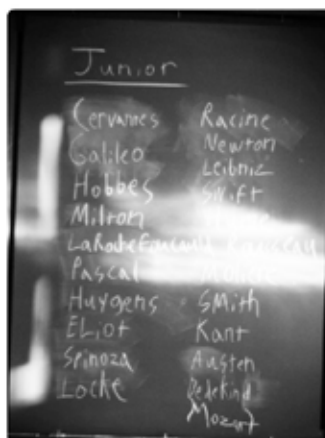 Junior
Cervantes
Galileo
Hobbes
Milton
LaRochefoucauld
Pascal
Huygens
ELiot
Spinoza
Locke
Racine
Newton
Leibniz
Swift
Rousseau
Moliere
SMith
Kant
Austen
Dedekind
Mozart